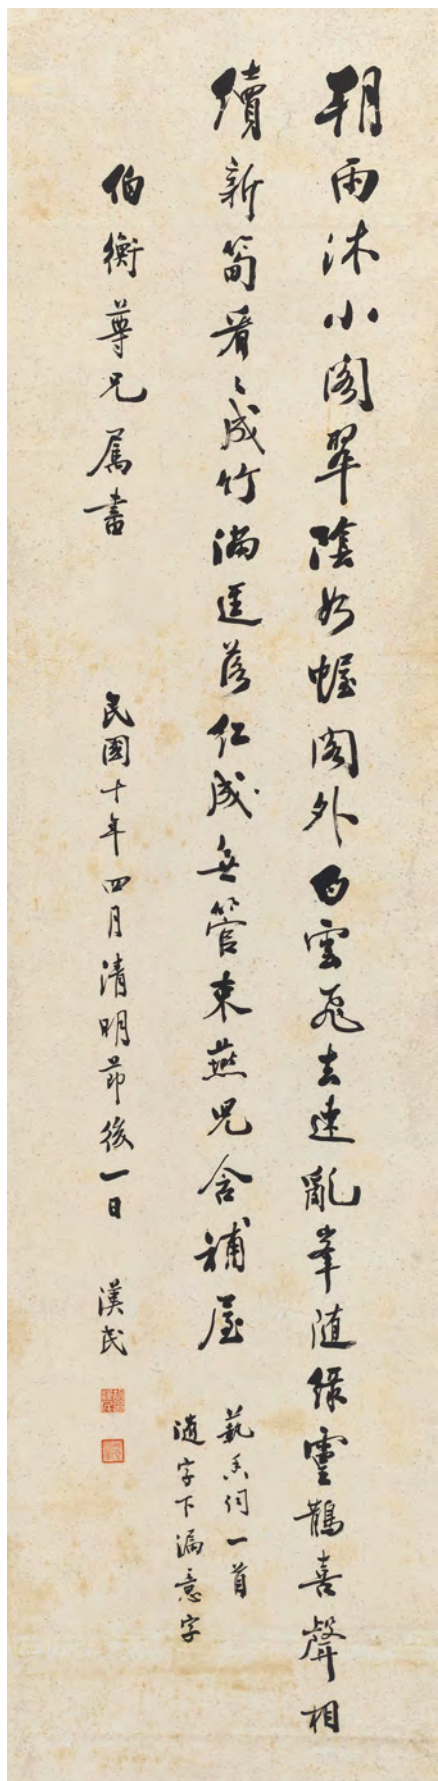 朝雨沐小閣翠陰如幄閣外白雲飛去速亂峯随緑靈鵲喜聲相
續新筍看〻成竹滿逕落紅成無管束燕兒含補屋
藝香詞一首
隨字下漏意字
伯衡尊兄屬書
民國十年四月清明節後一日 漢民